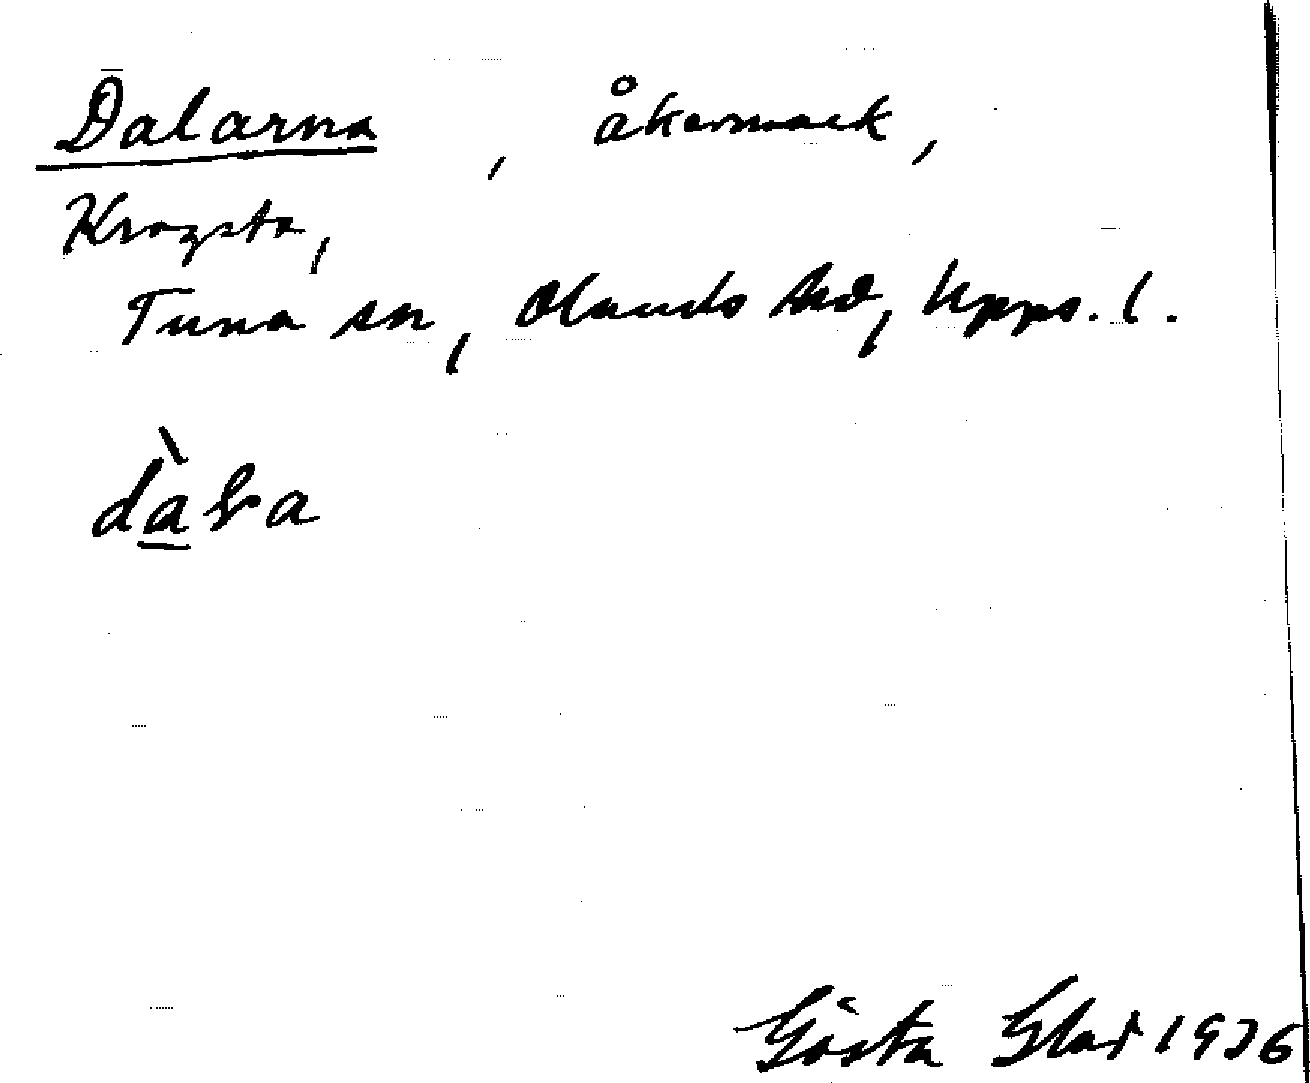 Dalarna, åkermark,
Kragsta,
Tuna sn, Olands hd, Upps. l.
Gösta Glad 1936